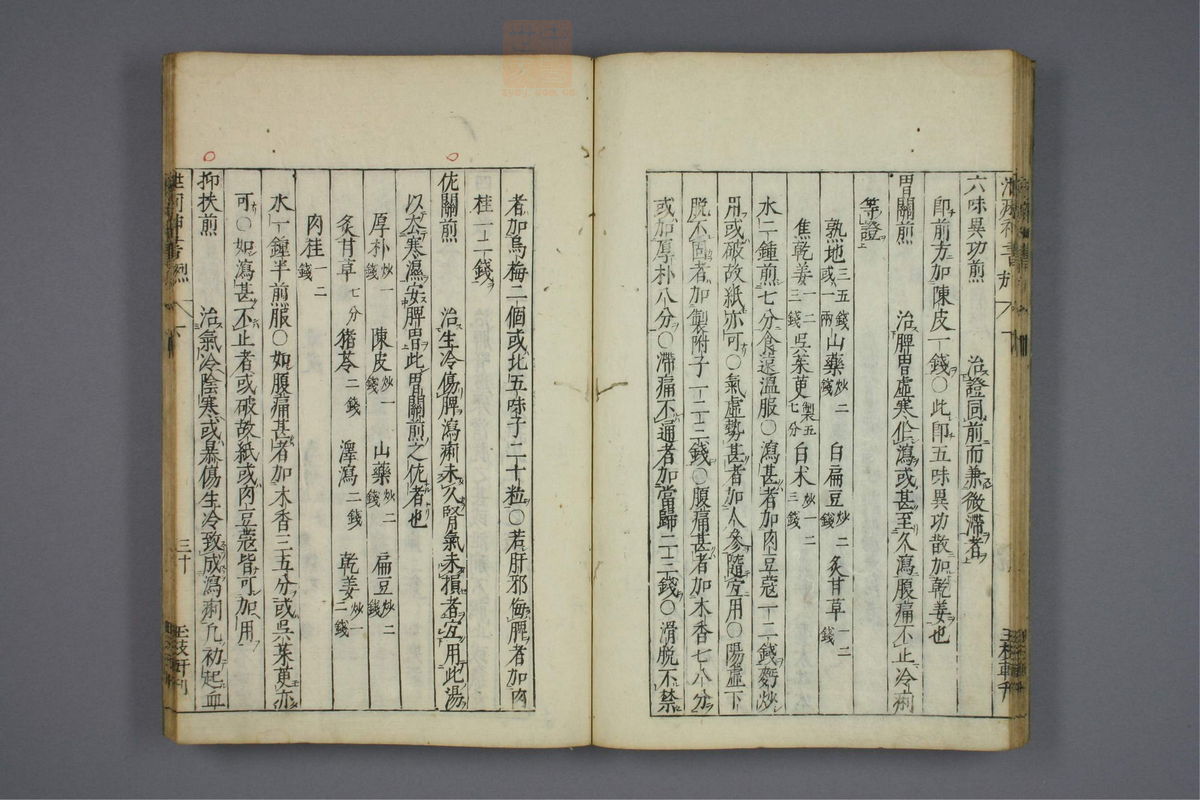 六味異功煎　治證同前而兼微滯者
即前方加陳皮一錢○此即五味異功散加乾姜也
胃關煎　治脾胃虛寒作瀉或甚至久瀉腹痛不止冷痢
等證
熟地三五錢或一兩　山藥炒二錢　白扁豆炒二錢　炙甘草一二錢
焦乾姜一二三錢　吳茱萸製五七分　白术炒一二三錢
水二鍾煎七分食遠溫服○瀉甚者加肉豆蔻一二錢麪炒
用或破故紙亦可○氣虛勢甚者加人參隨宜用○陽虛下
脫不固者加製附子一二三錢○腹痛甚者加木香七八分
或加厚朴八分○滯痛不通者加當歸二三錢○滑脫不禁
者加烏梅二個或北五味子二十粒○若肝邪侮脾者加肉
桂一二錢
佐關煎　治生冷傷脾瀉痢未久腎氣未損者宜用此湯
以去寒濕安脾胃此胃關煎之佐者也
厚朴炒一錢　陳皮炒一錢　山藥炒二錢　扁豆炒二錢
炙甘草七分　猪苓二錢　澤瀉二錢　乾姜炒一二錢
肉桂一二錢
水一鍾半煎服○如腹痛甚者加木香三五分或吳茱萸亦
可○如瀉甚不止者或破故紙或肉豆蔻皆可加用
抑扶煎　治氣冷陰寒或暴傷生冷致成瀉痢凡初起血
三十